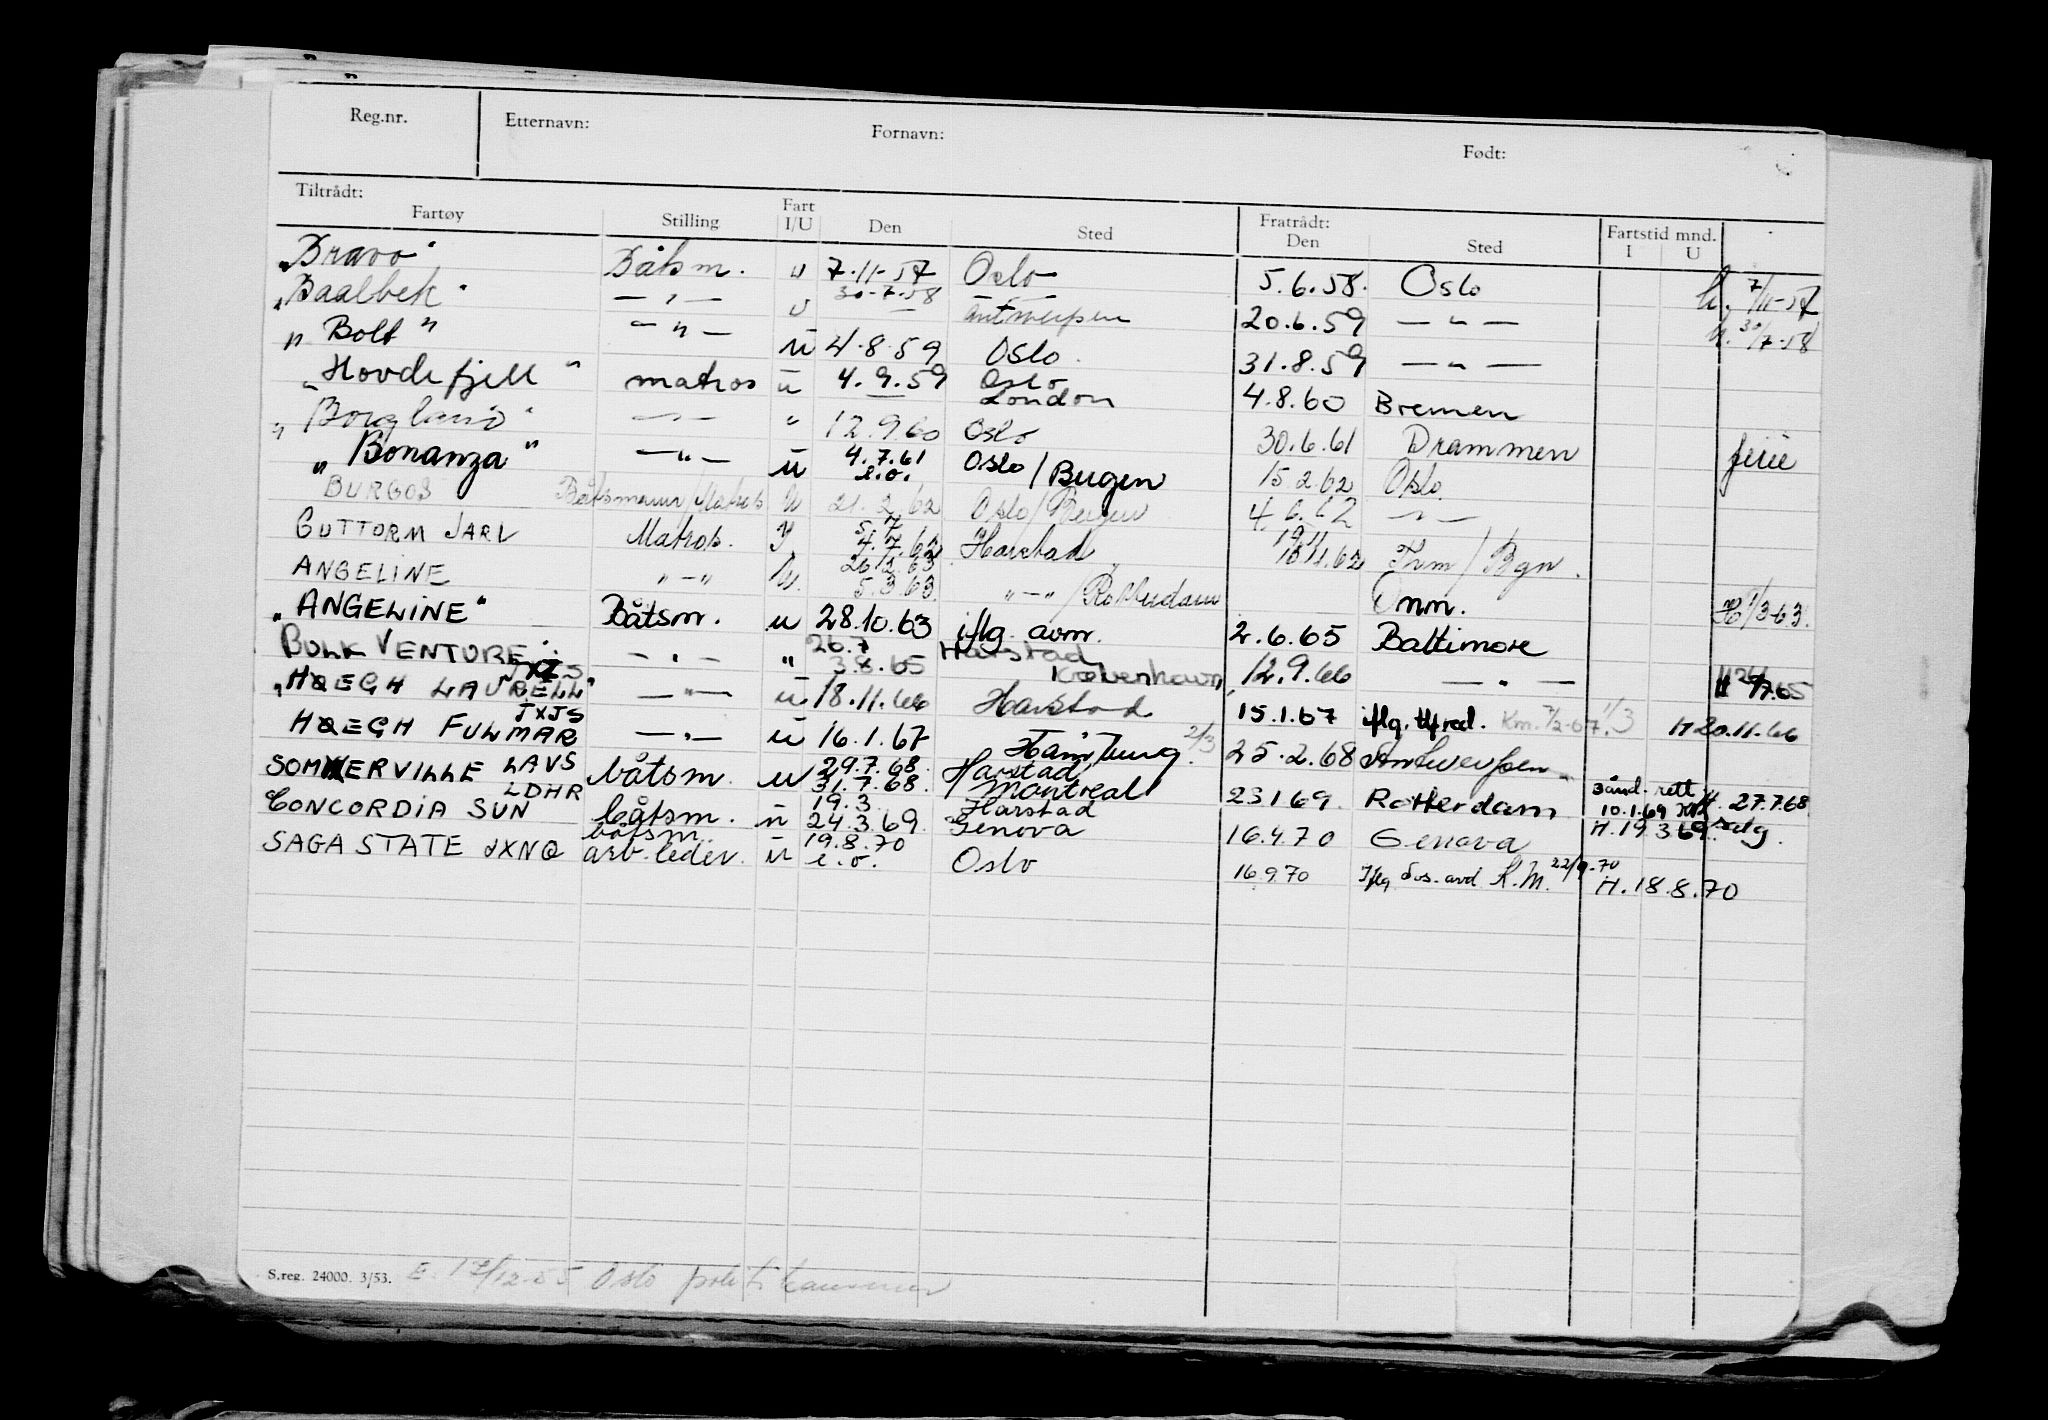 Reg.nr. Etternavn: Fornavn: Født:
Tiltrådt: Fratrådt: Fartstid mnd.
Fartøy Stilling Fart I/U Den Sted Den Sted I U
„Bravo" Båtsm. u 7-11-57 Oslo 5.6.58. Oslo h. 7/11-57
„Baalbek" — " — u 30-7-58 Antwerpen 20.6.59 — " — h. 30/7-58
„Bolt" — " — u 4.8.59 Oslo. 31.8.59 — " —
„Hovdefjell" matros u 4.9.59 Oslo London 4.8.60 Bremen
„Borgland" — " — " 12.9.60 Oslo 30.6.61 Drammen ferie
„Bonanza" — " — u 4.7.61 e.o. Oslo/Bergen 15.2.62 Oslo
BURGOS Båtsmann/Matros U 21.2.62 Oslo/Bergen 4.6.62 — " —
GUTTORM JARL Matros. I 5.7 4.7.62 Harstad 19.11 18.11.62 Trm/Bgn.
ANGELINE " — " U. 26.2.63 5.3.63. " — " /Rotterdam Onm. 1/3-63.
„ANGELINE" Båtsm. u 28.10.63 iflg. avm. 2.6.65 Baltimore
BULK VENTURE — " — " 26.7 3.8.65 Harstad København 12.9.66 — " —
„HØEGH LAURELL" JXZS — " — u 18.11.66 Harstad 15.1.67 iflg. Km. 7/2-67. 1/3 H 20.11.66
HØEGH FULMAR JXJS — " — u 16.1.67 Hamburg. 2/3 25.2.68 Antwerpen
SOMMERVILLE LAVS båtsm. u 29.7.68. 31.7.68. Harstad, Montreal 23.1.69. Rotterdam sånd. rett 10.1.69 H. 27.7.68
CONCORDIA SUN LDHR båtsm. u 19.3. 24.3.69. Harstad Genova 16.4.70 Genova H. 19.3.69. salg.
SAGA STATE JXNQ båtsm. arb. leder. u 19.8.70 e.o. Oslo 16.9.70 Iflg K.M. 22/9-70 H. 18.8.70
S.reg. 24000. 3/53. E. 17/12-55 Oslo politikammer